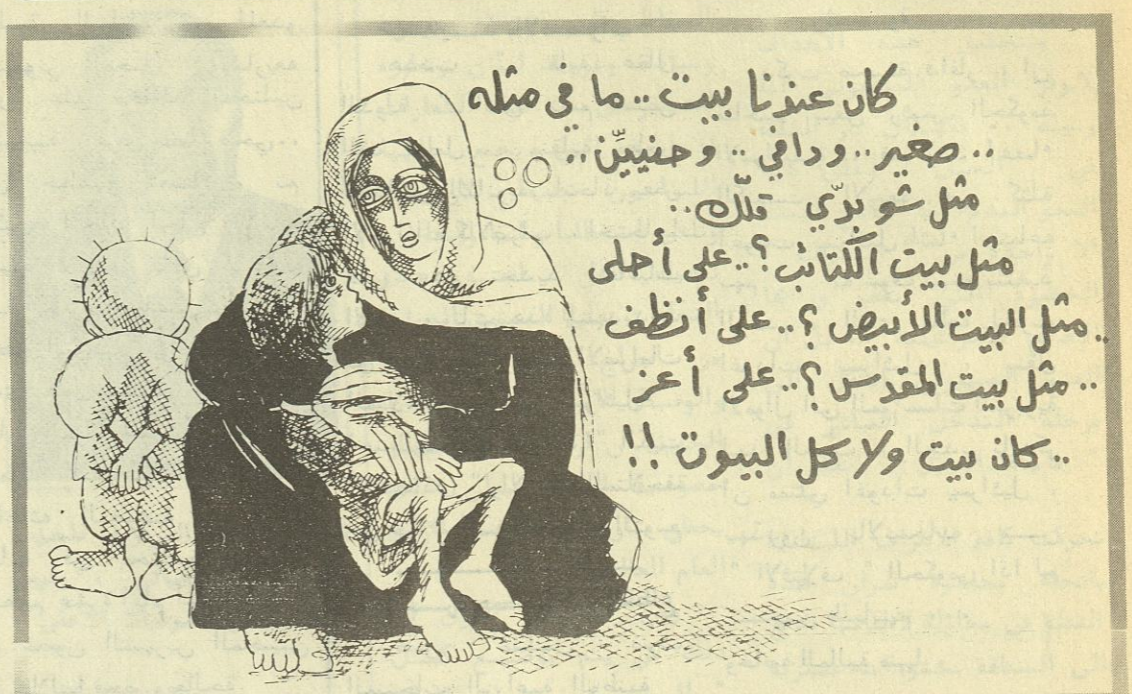 كان عندنا بيت .. ما في مثله
.. صغير .. ودافي .. وحنيّين ..
مثل شو بدّي قلّك ..
مثل بيت الكتائب ؟ .. على أحلى
.. مثل البيت الأبيض ؟ .. على أنظف
.. مثل بيت المقدس ؟ .. على أعز
.. كان بيت ولا كل البيوت !!